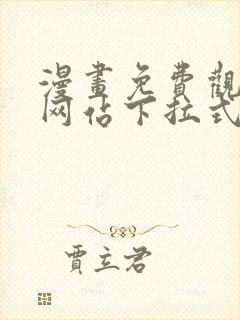 漫畫免費觀
网佔下拉式
賈立君